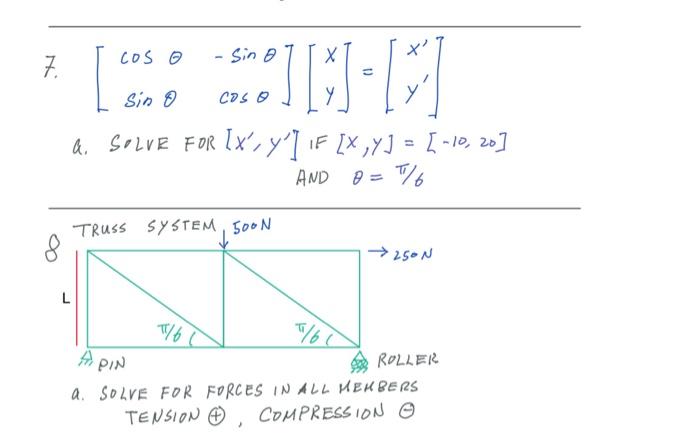 7. [ cos θ - Sin θ ] [ X ] = [ X' ]
[ Sin θ cos θ ] [ Y ] [ Y' ]
a. SOLVE FOR [X', Y'] IF [X, Y] = [-10, 20]
AND θ = π/6
8 TRUSS SYSTEM 500N
→ 250N
L
π/6 π/6
PIN ROLLER
a. SOLVE FOR FORCES IN ALL MEMBERS
TENSION ⊕, COMPRESSION ⊖